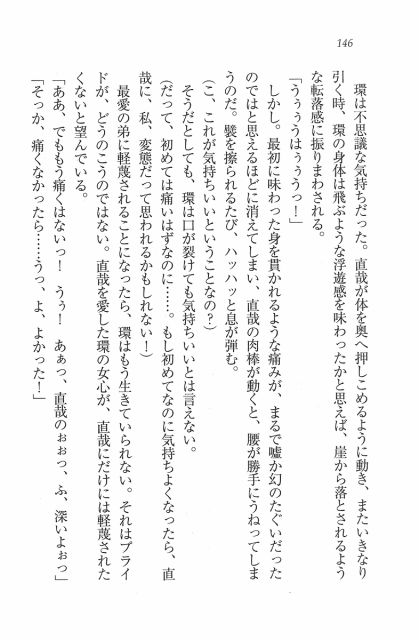 146
　環は不思議な気持ちだった。直哉が体を奥へ押しこめるように動き、またいきなり
引く時、環の身体は飛ぶような浮遊感を味わったかと思えば、崖から落とされるよう
な転落感に振りまわされる。
「うぅぅうはぅぅうっ！」
　しかし。最初に味わった身を貫かれるような痛みが、まるで嘘か幻のたぐいだった
のではと思えるほどに消えてしまい、直哉の肉棒が動くと、腰が勝手にうねってしま
うのだ。襞を擦られるたび、ハッハッと息が弾む。
(こ、これが気持ちいいということなの？)
　そうだとしても、環は口が裂けても気持ちいいとは言えない。
(だって、初めては痛いはずなのに……。もし初めてなのに気持ちよくなったら、直
哉に、私、変態だって思われるかもしれない！)
　最愛の弟に軽蔑されることになったら、環はもう生きていられない。それはプライ
ドが、どうのこうのではない。直哉を愛した環の女心が、直哉にだけには軽蔑された
くないと望んでいる。
「ああ、でももう痛くはないっ！　うぅ！　あぁっ、直哉のぉぉっ、ふ、深いよぉっ」
「そっか、痛くなかったら……うっ、よ、よかった！」